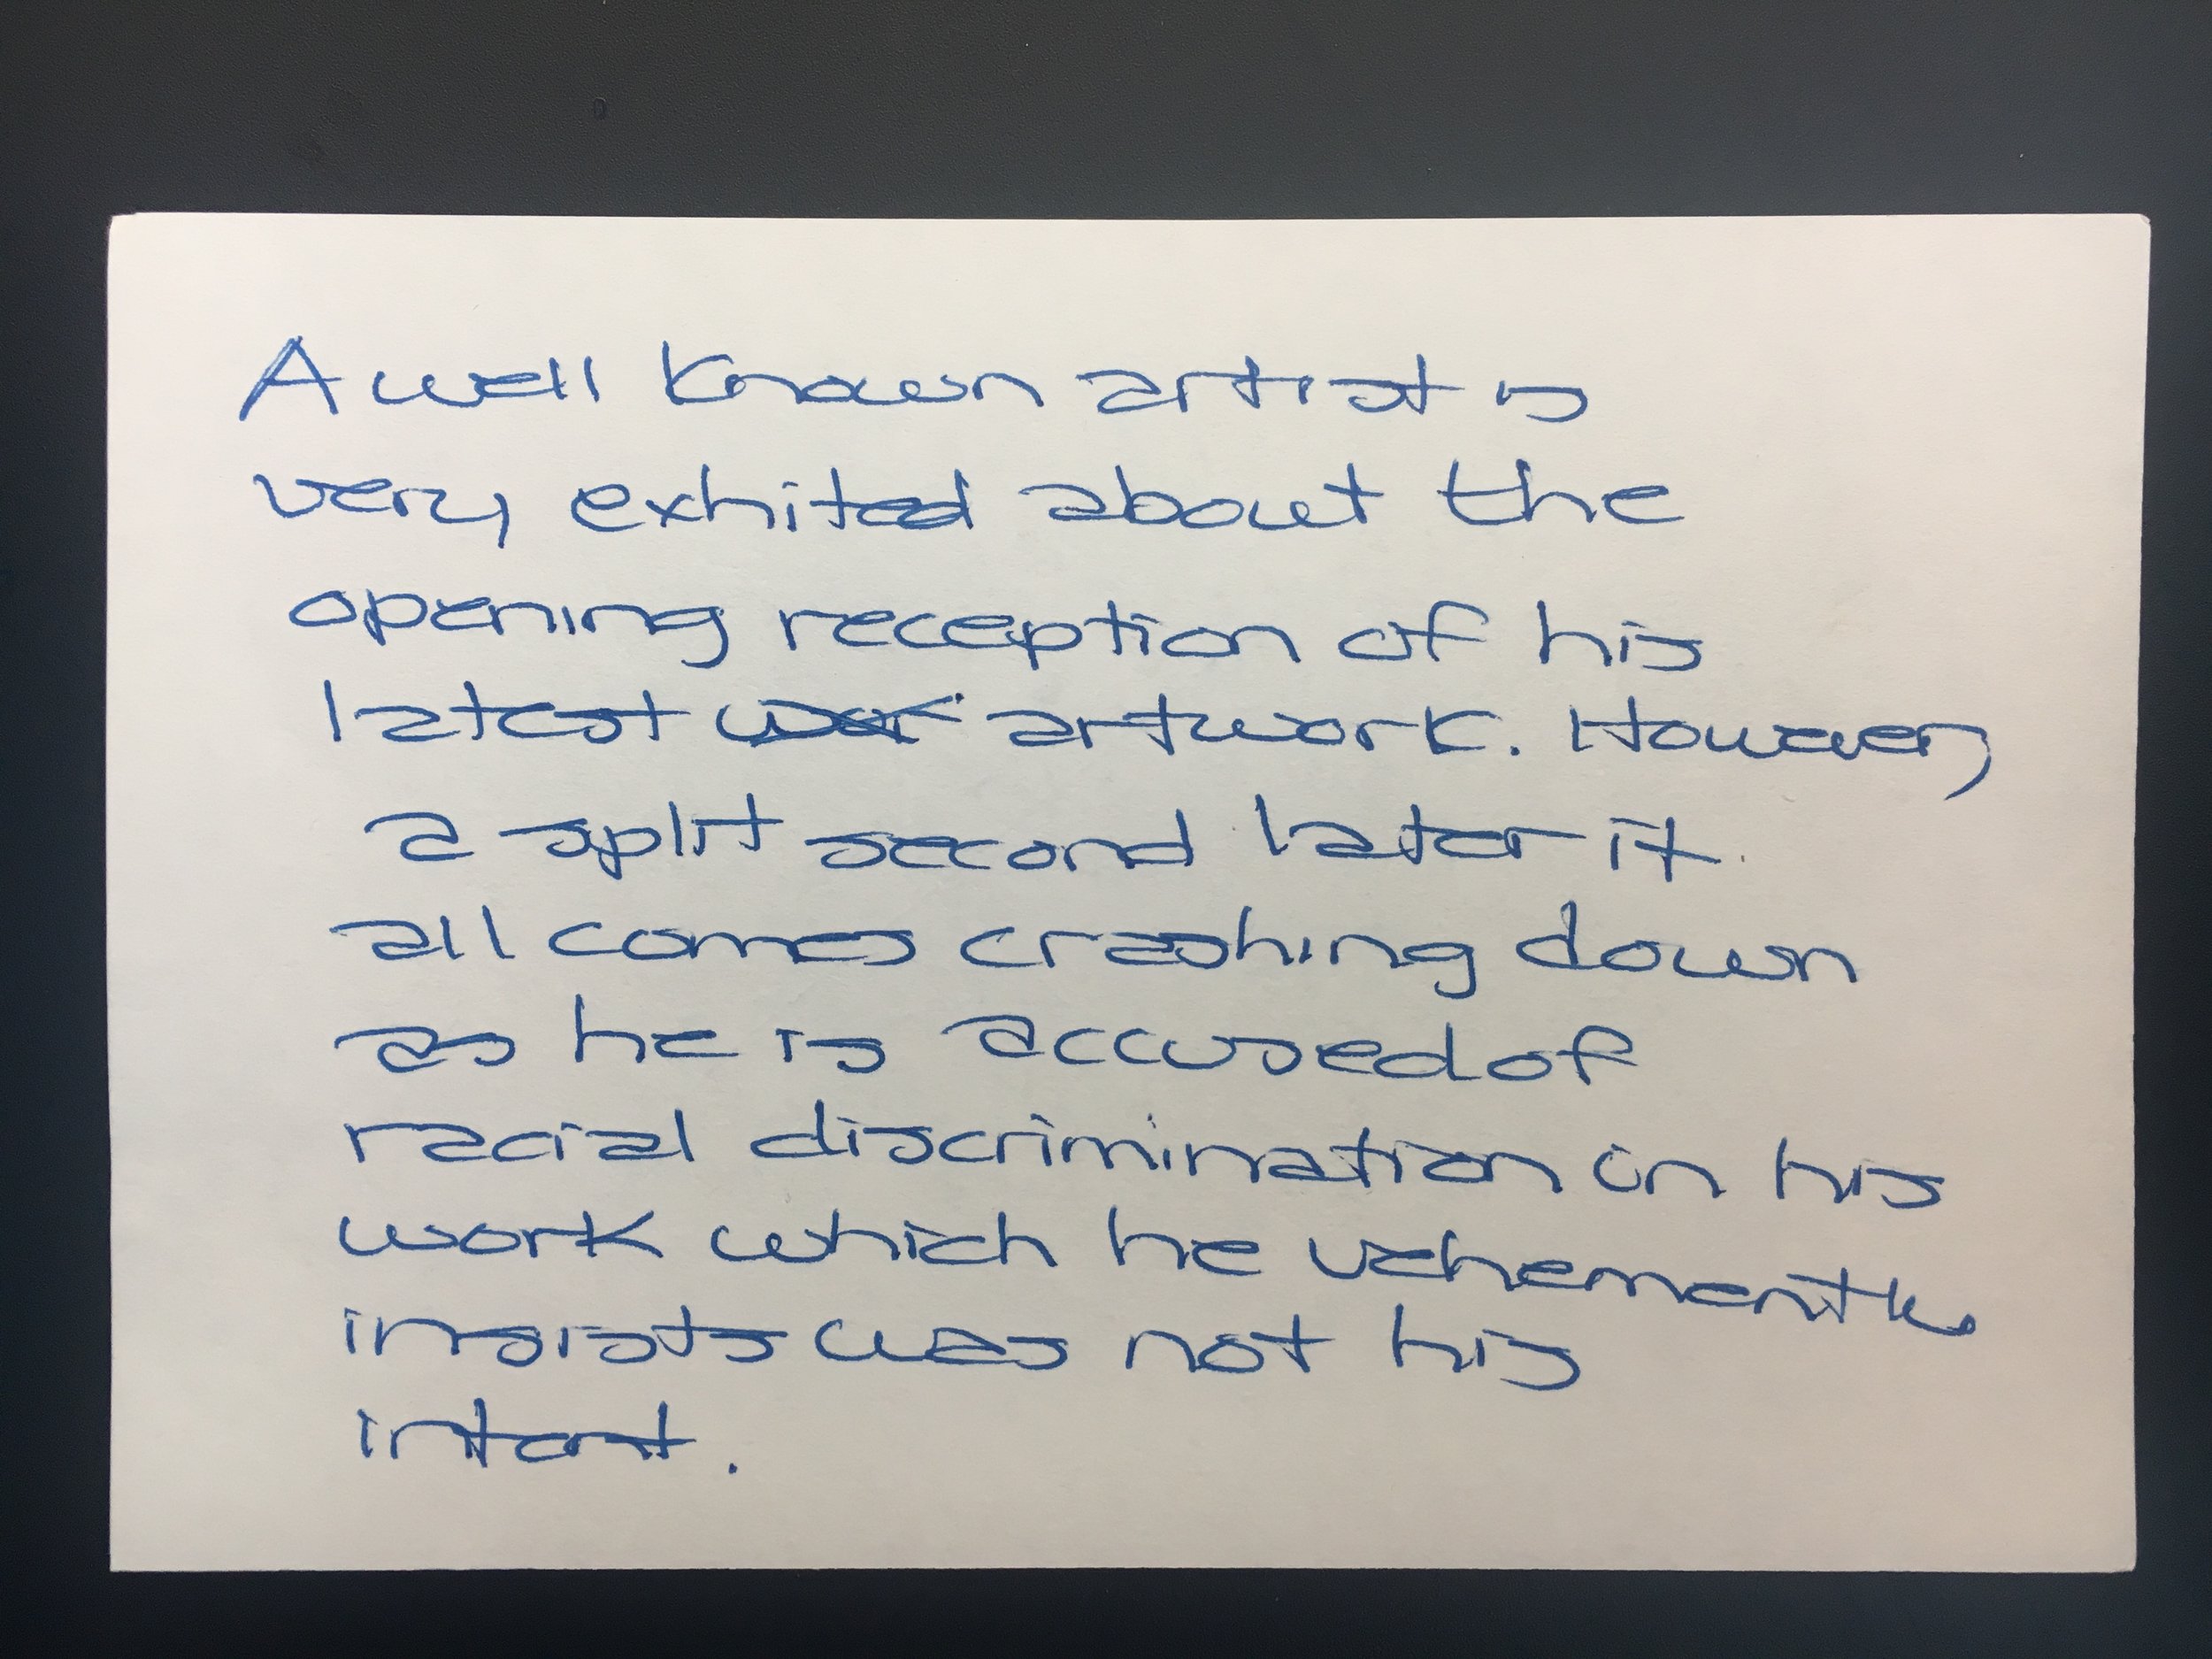 A well known artist is
very exhited about the
opening reception of his
latest artwork. However,
a split second later it
all comes crashing down
as he is accused of
racial discrimination in his
work which he vehemently
insists was not his
intent.